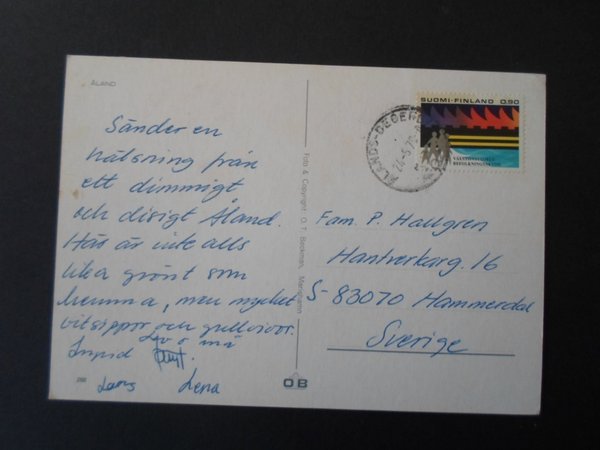 ÅLAND
Sänder en
hälsning från
ett dimmigt
och disigt Åland.
Här är inte alls
lika grönt som
hemma, men mycket
vitsippor och gullvivor.
Ingrid
Lars Lena
280
Foto & Copyright: O. T. Beckman, Mariehamn
OB
SUOMI-FINLAND 0,90
VÄESTÖNSUOJELU
BEFOLKNINGSSKYDD
Fam. P. Hallgren
Hantverkarg. 16
S-83070 Hammerdal
Sverige